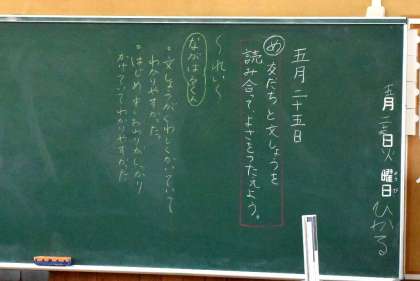 五月二十五日火曜日
ようび
ひかる
五月二十五日
め 友だちと文しょうを
読み合ってよさをつたえよう。
〈れい〉
ながはらくん
・文しょうがくわしくかいていて
わかりやすかった。
・はじめ中おわりがしっかり
かけていてわかりやすかった